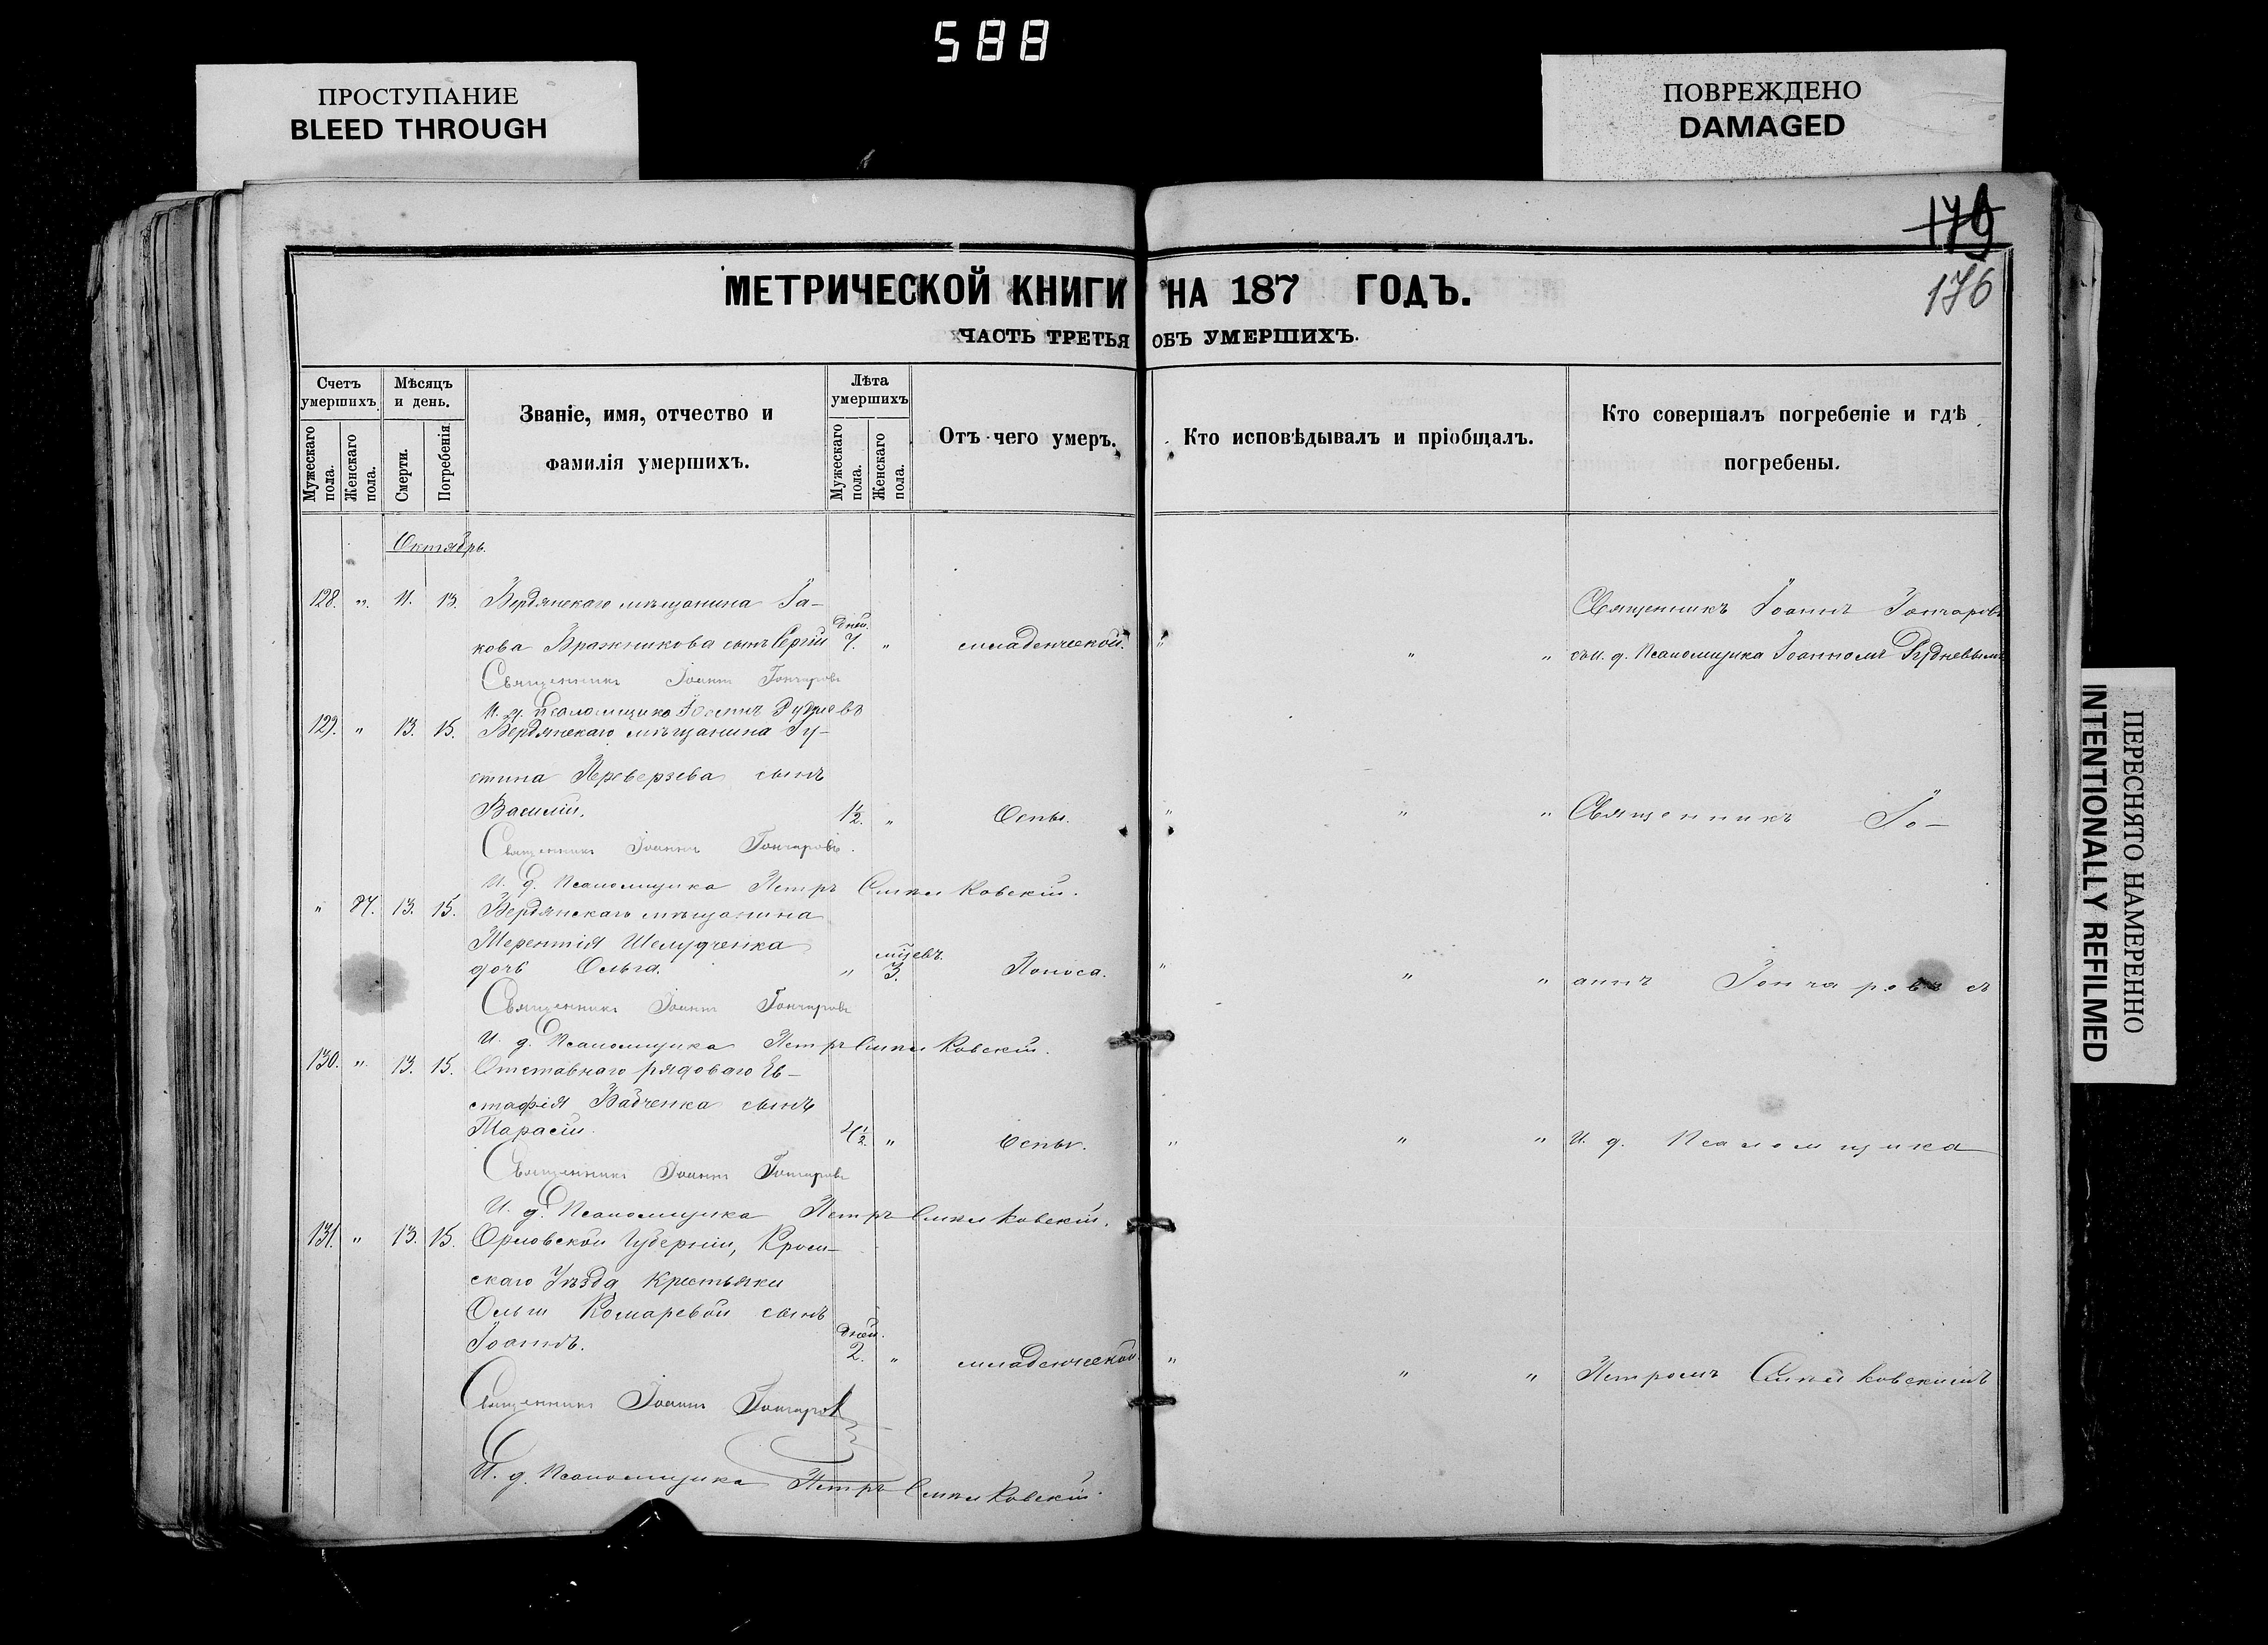 588
ПРОСТУПАНИЕ
BLEED THROUGH
ПОВРЕЖДЕНО
DAMAGED
179
176
МЕТРИЧЕСКОЙ КНИГИ НА 187 ГОДЪ.
ЧАСТЬ ТРЕТЬЯ ОБЪ УМЕРШИХЪ.
Счетъ умершихъ.
Мужескаго пола.
Женскаго пола.
Мѣсяцъ и день.
Смерти.
Погребенія.
Званіе, имя, отчество и
фамилія умершихъ.
Лѣта умершихъ
Мужескаго пола.
Женскаго пола.
Отъ чего умеръ.
Кто исповѣдывалъ и пріобщалъ.
Кто совершалъ погребеніе и гдѣ
погребены.
Октябрь.
128. " 11. 13. Бердянскаго мѣщанина Іа-
кова Бражникова сынъ Сергій дней 7. " младенческой. " " "
Священникъ Іоаннъ Гончаровъ
И. д. Псаломщика Іоаннъ Рудневъ
Священникъ Іоаннъ Гончаровъ
съ и. д. Псаломщика Іоанномъ Рудневымъ
129. " 13. 15. Бердянскаго мѣщанина Іу-
стина Переверзева сынъ
Василій. 1½. " Оспы. " " "
Священникъ Іоаннъ Гончаровъ.
И. д. Псаломщика Петръ ковскій.
Священникъ Іо-
" 87. 13. 15. Бердянскаго мѣщанина
Терентія Шелудченка
дочь Ольга. " мцевъ 3. Поноса. " " "
Священникъ Іоаннъ Гончаровъ
И. д. Псаломщика Петръ ковскій.
аннъ Гончаровъ съ
130. " 13. 15. Отставнаго рядоваго Ев-
стафія Бабченка сынъ
Тарасій. 4½. " Оспы. " " "
Священникъ Іоаннъ Гончаровъ
И. д. Псаломщика Петръ ковскій.
И. д. Псаломщика
131. " 13. 15. Орловской Губерніи, Кром-
скаго Уѣзда крестьянки
Ольги Комаревой сынъ
Іоаннъ. дней 2. " младенческой. " " "
Священникъ Іоаннъ Гончаровъ
И. д. Псаломщика Петръ ковскій.
Петромъ ковскимъ
ПЕРЕСНЯТО НАМЕРЕННО
INTENTIONALLY REFILMED